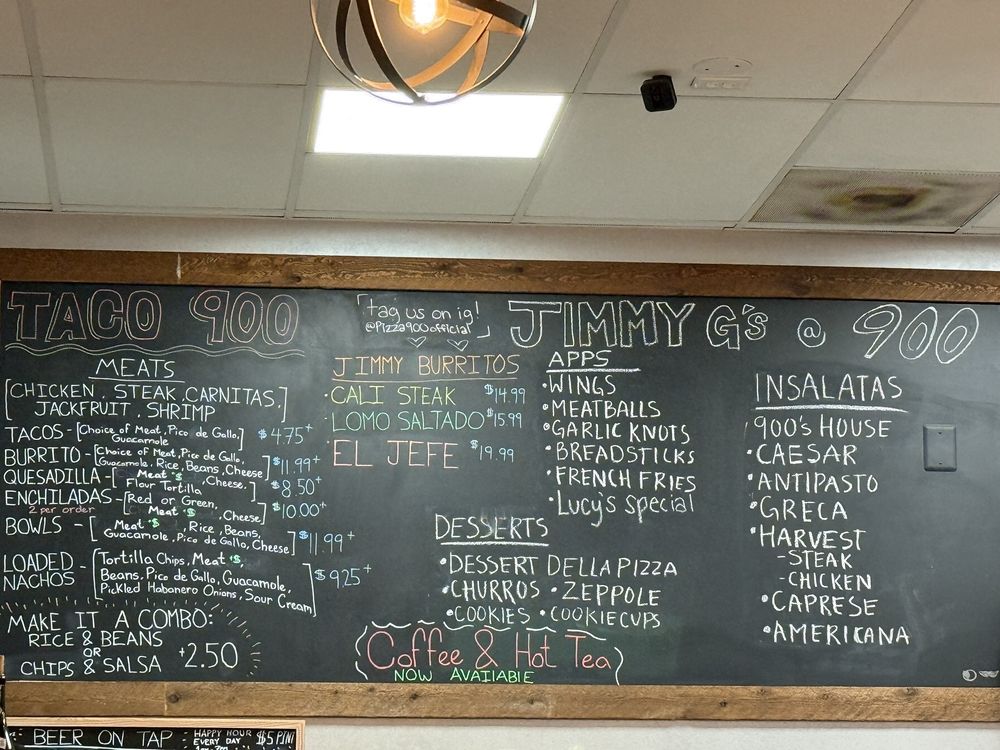 TACO 900
MEATS
[CHICKEN, STEAK, CARNITAS,
JACKFRUIT, SHRIMP]
TACOS - [Choice of Meat, Pico de Gallo,
Guacamole] $4.75+
BURRITO - [Choice of Meat, Pico de Gallo,
Guacamole, Rice, Beans, Cheese] $11.99+
QUESADILLA - [Meat *$, Cheese,
Flour Tortilla] $8.50+
ENCHILADAS - [Red or Green,
2 per order Meat *$, Cheese] $10.00+
BOWLS - [Meat *$, Rice, Beans,
Guacamole, Pico de Gallo, Cheese] $11.99+
LOADED NACHOS - [Tortilla Chips, Meat *$,
Beans, Pico de Gallo, Guacamole,
Pickled Habanero Onions, Sour Cream] $9.25+
MAKE IT A COMBO:
RICE & BEANS
OR
CHIPS & SALSA +2.50
"tag us on ig!
@Pizza900official"
JIMMY BURRITOS
CALI STEAK $14.99
LOMO SALTADO $15.99
EL JEFE $19.99
JIMMY G's @ 900
APPS
•WINGS
•MEATBALLS
•GARLIC KNOTS
•BREADSTICKS
•FRENCH FRIES
•Lucy's Special
DESSERTS
•DESSERT DELLA PIZZA
•CHURROS •ZEPPOLE
•COOKIES •COOKIE CUPS
Coffee & Hot Tea
NOW AVAILABLE
INSALATAS
900's HOUSE
•CAESAR
•ANTIPASTO
•GRECA
•HARVEST
-STEAK
-CHICKEN
•CAPRESE
•AMERICANA
BEER ON TAP :
HAPPY HOUR
EVERY DAY
$5 PINT